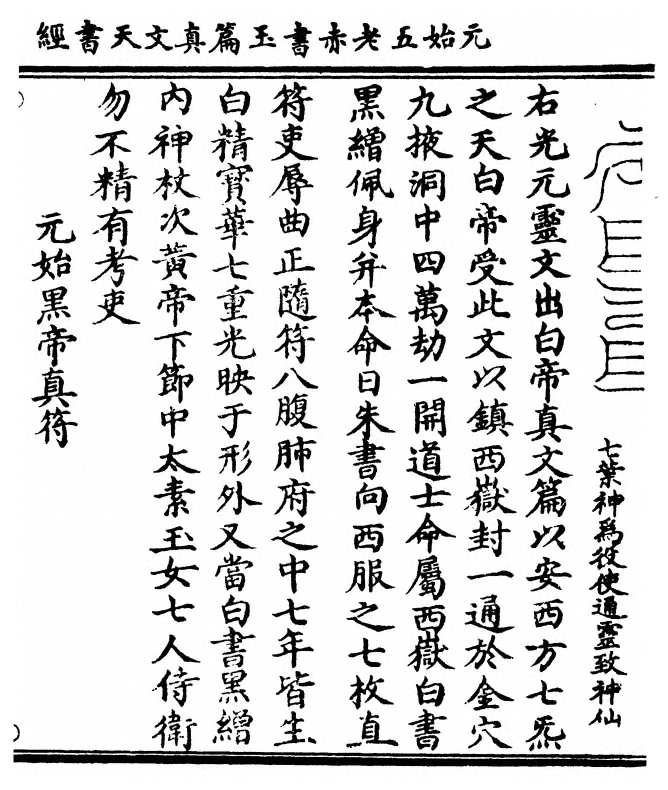 元始五老赤書玉篇真文天書經
七葉神爲役使通靈致神仙
右光元靈文出白帝真文篇以安西方七炁
之天白帝受此文以鎮西嶽封一通於金穴
九掖洞中四萬劫一開道士命屬西嶽白書
黑繒佩身并本命日朱書向西服之七枚直
符吏辱曲正隨符八腹肺府之中七年皆生
白精寶華七重光映于形外又當白書黑繒
内神杖次黃帝下節中太素玉女七人侍衛
勿不精有考吏
元始黑帝真符